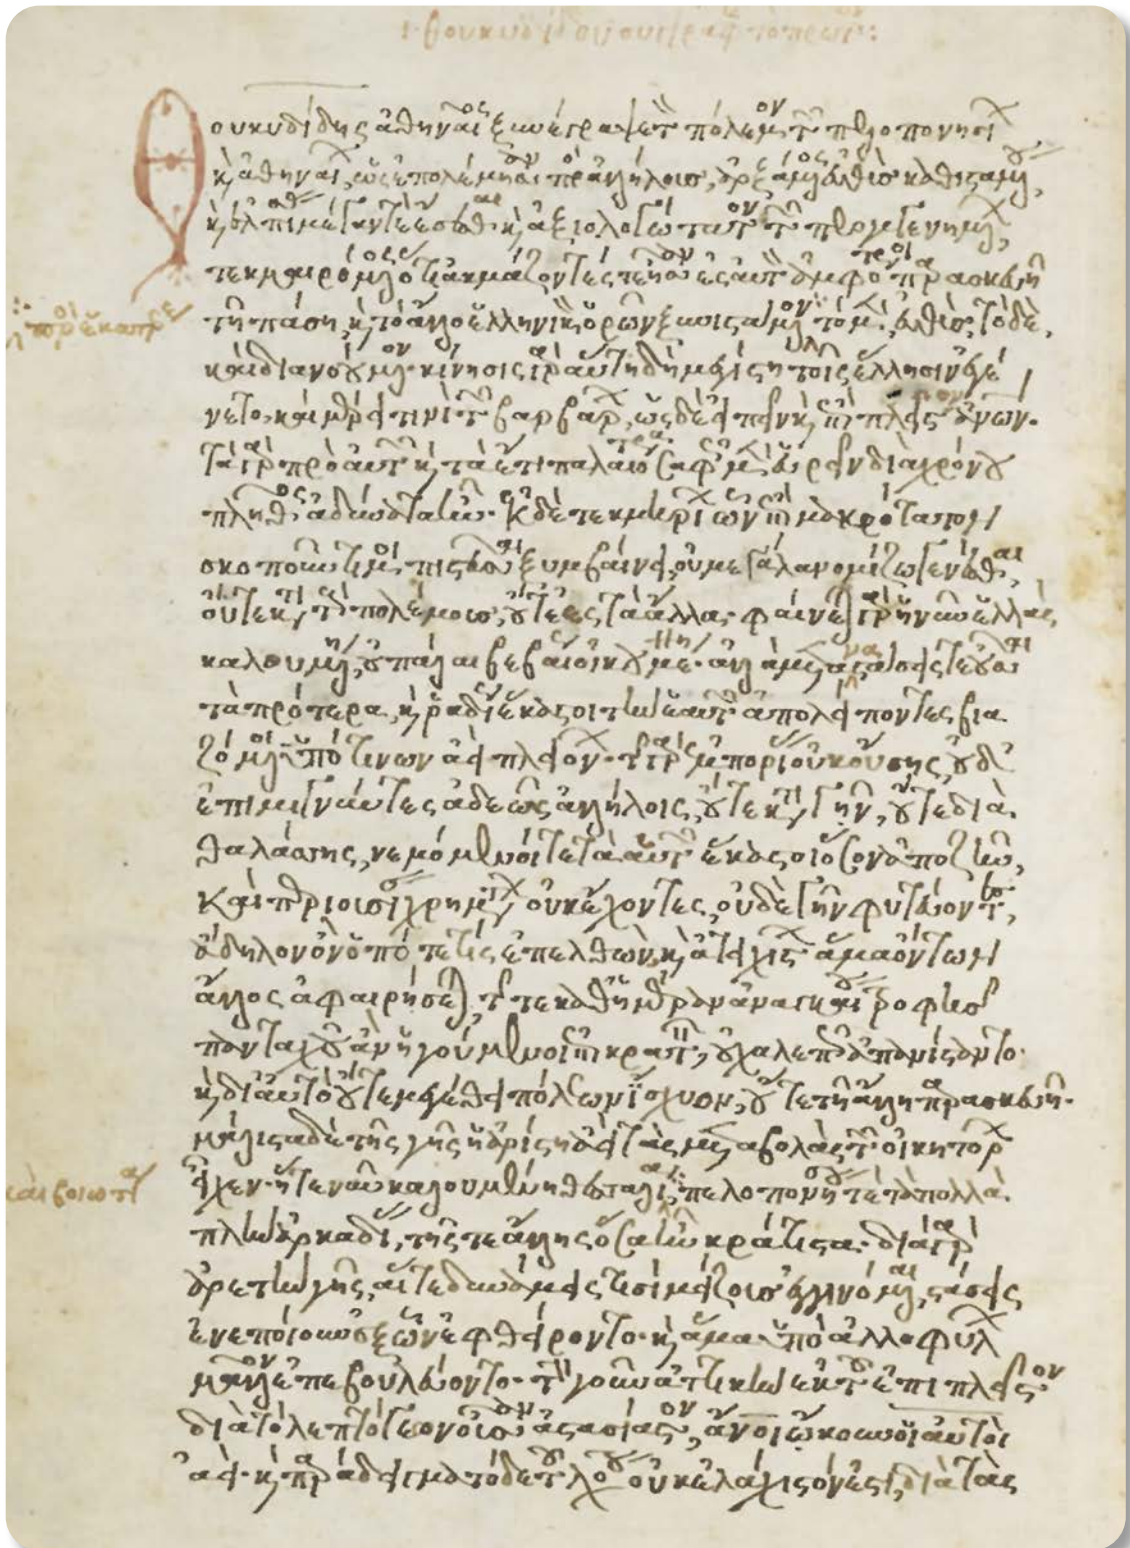 Θουκυδίδου συγγραφῆς τὸ πρῶτον:
Θουκυδίδης ἀθηναῖος ξυνέγραψε τὸν πόλεμον τῶν πελοποννησίων
καὶ ἀθηναίων, ὡς ἐπολέμησαν πρὸς ἀλλήλους, ἀρξάμενος εὐθὺς καθισταμένου,
καὶ ἐλπίσας μέγαν τε ἔσεσθαι καὶ ἀξιολογώτατον τῶν προγεγενημένων,
τεκμαιρόμενος ὅτι ἀκμάζοντές τε ἦσαν ἐς αὐτὸν ἀμφότεροι παρασκευῇ
πρὸς ἑκατέρους
τῇ πάσῃ, καὶ τὸ ἄλλο ἑλληνικὸν ὁρῶν ξυνιστάμενον τὸ μὲν εὐθὺς, τὸ δὲ
καὶ διανοούμενον. κίνησις γὰρ αὕτη δὴ μεγίστη τοῖς ἕλλησιν ἐγέ
νετο. καὶ μέρει τινὶ τῶν βαρβάρων, ὡς δὲ εἰπεῖν καὶ ἐπὶ πλεῖστον ἀνθρώπων.
τὰ γὰρ πρὸ αὐτῶν καὶ τὰ ἔτι παλαιότερα σαφῶς μὲν εὑρεῖν διὰ χρόνου
πλῆθος ἀδύνατα ἦν. ἐκ δὲ τεκμηρίων ὧν ἐπὶ μακρότατον
σκοποῦντί μοι πιστεῦσαι ξυμβαίνει, οὐ μεγάλα νομίζω γενέσθαι,
οὔτε κατὰ τοὺς πολέμους, οὔτε ἐς τὰ ἄλλα. φαίνεται γὰρ ἡ νῦν ἑλλὰς
καλουμένη, οὐ πάλαι βεβαίως οἰκουμένη. ἀλλὰ μεταναστάσεις τε οὖσαι
τὰ πρότερα, καὶ ῥᾳδίως ἕκαστοι τὴν ἑαυτῶν ἀπολείποντες βια
ζόμενοι ὑπό τινων ἀεὶ πλειόνων. τῆς γὰρ ἐμπορίας οὐκ οὔσης, οὐδ'
ἐπιμιγνύντες ἀδεῶς ἀλλήλοις, οὔτε κατὰ γῆν, οὔτε διὰ
θαλάσσης, νεμόμενοί τε τὰ αὑτῶν ἕκαστοι ὅσον ἀποζῆν,
καὶ περιουσίαν χρημάτων οὐκ ἔχοντες, οὐδὲ γῆν φυτεύοντες,
ἄδηλον ὂν ὁπότε τις ἐπελθὼν, καὶ ἀτειχίστων ἅμα ὄντων
ἄλλος ἀφαιρήσεται, τῆς τε καθ' ἡμέραν ἀναγκαίου τροφῆς
πανταχοῦ ἂν ἡγούμενοι ἐπικρατεῖν, οὐ χαλεπῶς ἀπανίσταντο.
καὶ δι' αὐτὸ οὔτε μεγέθει πόλεων ἴσχυον, οὔτε τῇ ἄλλῃ παρασκευῇ.
μάλιστα δὲ τῆς γῆς ἡ ἀρίστη ἀεὶ τὰς μεταβολὰς τῶν οἰκητόρων
καὶ βοιωτία
εἶχεν. ἥ τε νῦν καλουμένη θεσσαλία, πελοποννήσου τε τὰ πολλὰ
πλὴν ἀρκαδίας, τῆς τε ἄλλης ὅσα ἦν κράτιστα. διὰ γὰρ
ἀρετὴν γῆς, αἵ τε δυνάμεις τισὶ μείζους ἐγγινόμεναι, στάσεις
ἐνεποίουν ἐξ ὧν ἐφθείροντο. καὶ ἅμα ὑπὸ ἀλλοφύλων
μᾶλλον ἐπεβουλεύοντο. τὴν γοῦν ἀττικὴν ἐκ τοῦ ἐπὶ πλεῖστον
διὰ τὸ λεπτόγεων ἀστασίαστον οὖσαν, ἄνθρωποι ᾤκουν οἱ αὐτοὶ
ἀεί. καὶ παράδειγμα τόδε τοῦ λόγου οὐκ ἐλάχιστόν ἐστι, διὰ τὰς